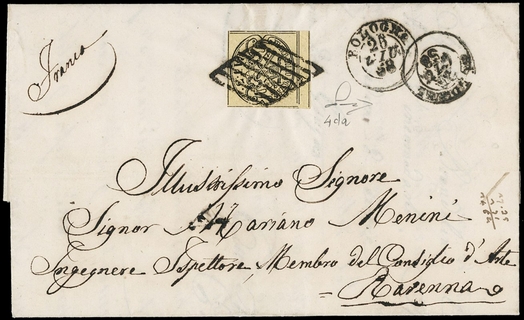 Franca
BOLOGNA
26
LUG
58
4da
Illustrissimo Signore
Signor Mariano Menini
Ingegnere Ispettore Membro del Consiglio d'Arte
Ravenna